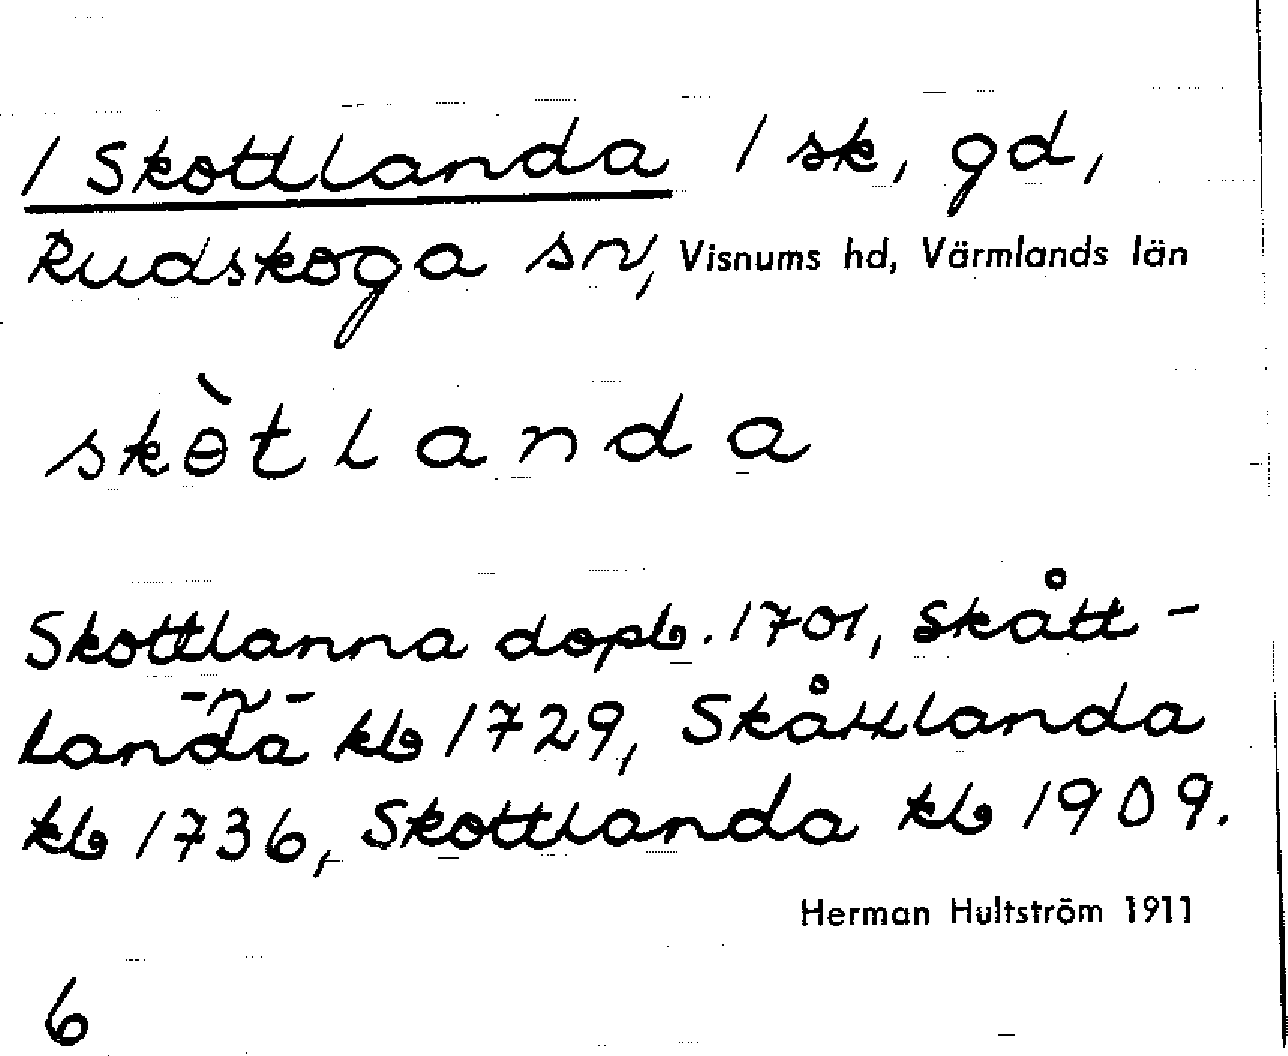 / Skottlanda / sk, gd,
Rudskoga sn, Visnums hd, Värmlands län
skɵ̀tlanda
Skottlanna dopb. 1701, Skått-
-n-
landa kb 1729, Skåttlanda
kb 1736, Skottlanda kb 1909.
Herman Hultström 1911
6